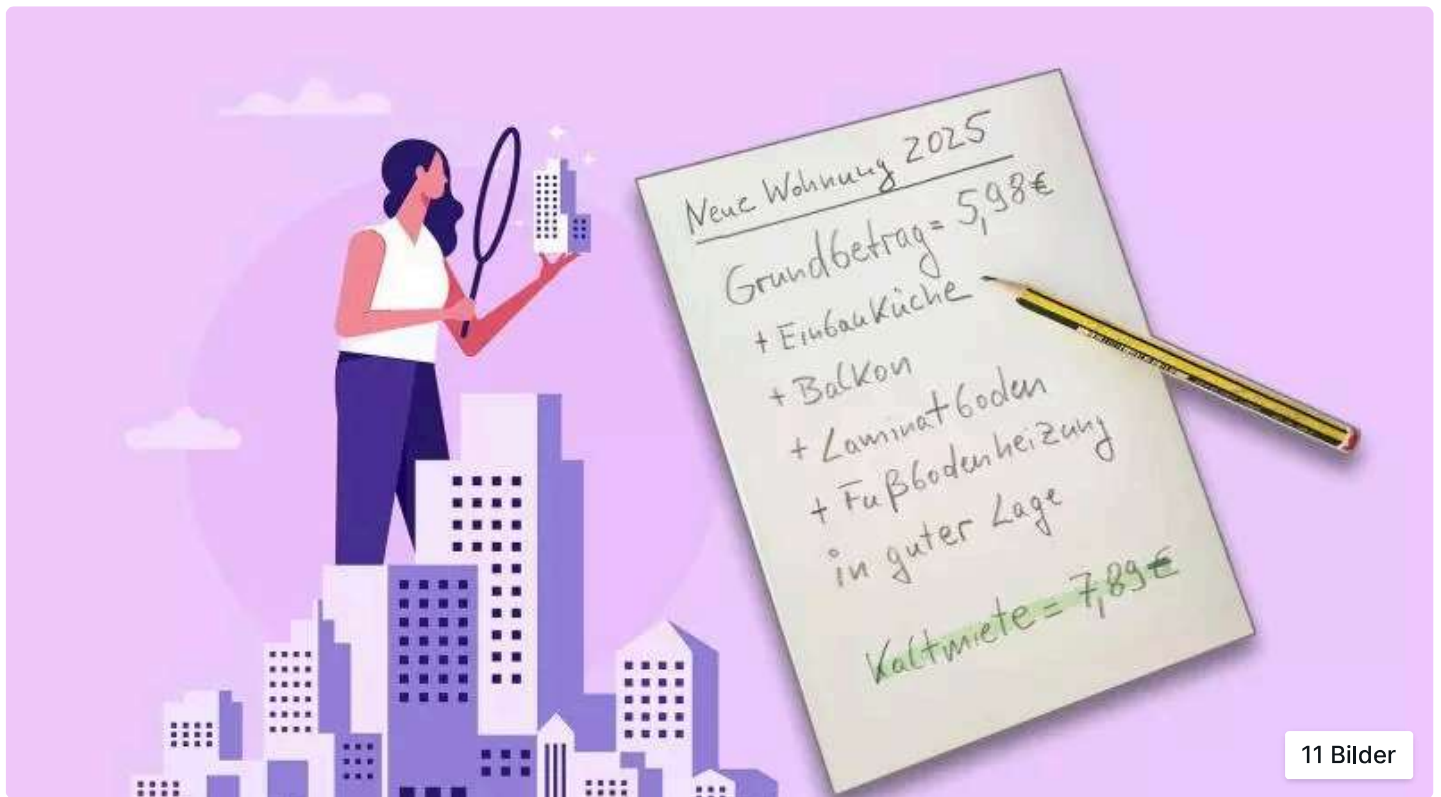 Neue Wohnung 2025
Grundbetrag = 5,98€
+ Einbauküche
+ Balkon
+ Laminatboden
+ Fußbodenheizung
in guter Lage
Kaltmiete = 7,89€
11 Bilder